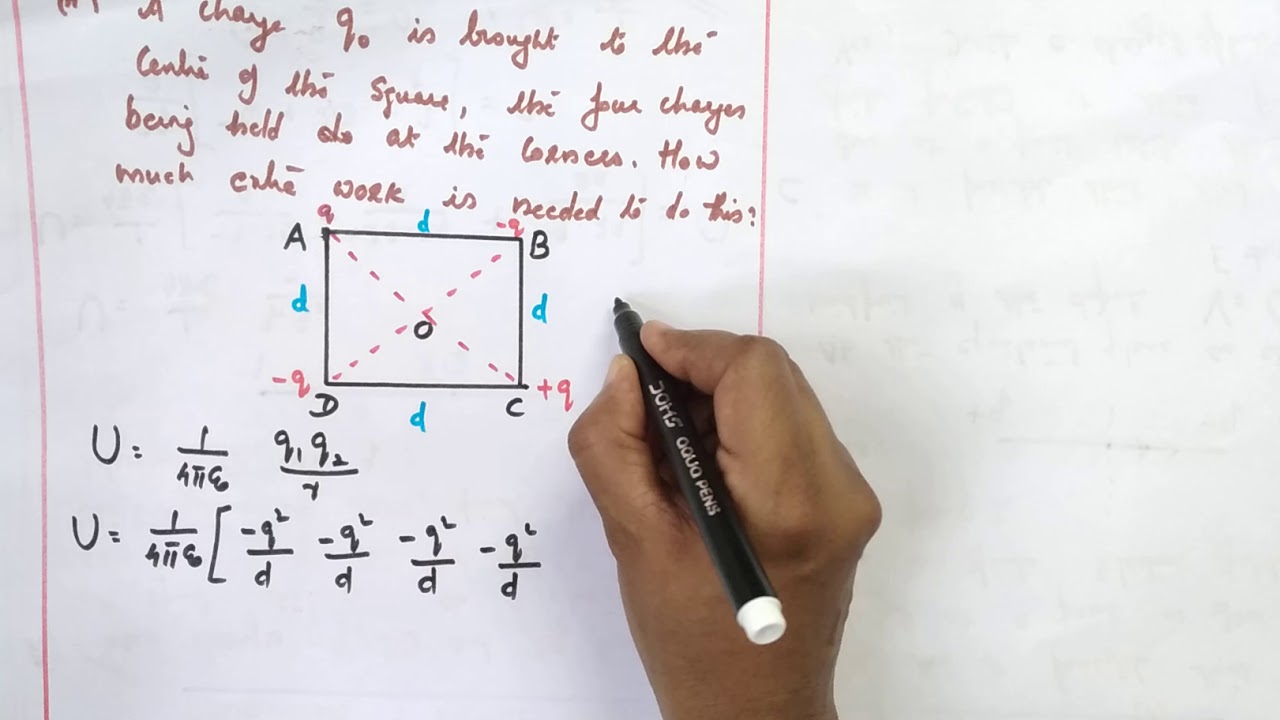 A charge q₀ is brought to the
Centre of the square, the four charges
being held at the corners. How
much extra work is needed to do this?
q d -q
A B
d d
O
-q +q
D C
d
U = 1/4πε₀ q₁q₂/r
U = 1/4πε₀ [ -q²/d -q²/d -q²/d -q²/d
JOHS AQUA PENS